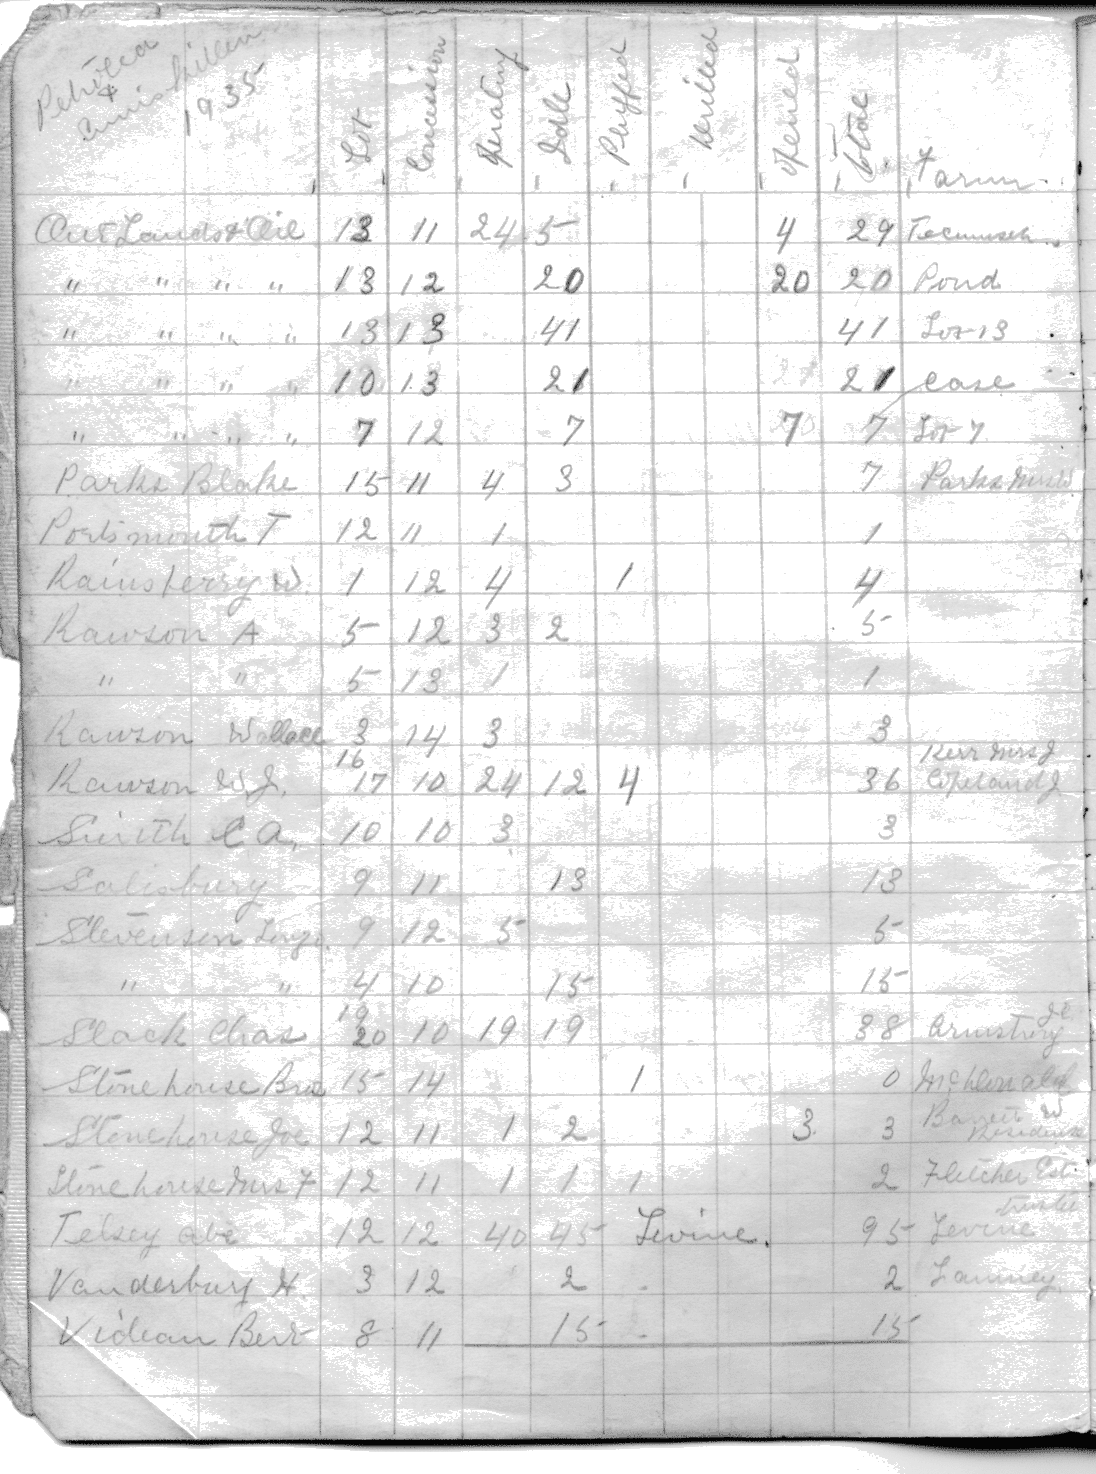 Petrolea
&
Enniskillen
1935
Lot Concession Operating Idle Plugged Drilled Opened Total Farm
Out Lands & Oil 13 11 24 5 4 29 Tecumseh
" " " " 13 12 20 20 20 Pond
" " " " 13 13 41 41 Lot 13
" " " " 10 13 21 21 Case
" " " " 7 12 7 7 7 Lot 7
Parks Blake 15 11 4 3 7 Parks Mrs W
Portsmouth T 12 11 1 1
Rainsberry W. 1 12 4 1 4
Rawson A 5 12 3 2 5
" " 5 13 1 1
Rawson Wallace 3 14 3 3
16 Kerr Mrs J
Rawson W J. 17 10 24 12 4 36 Copeland J
Smith C A, 10 10 3 3
Salisbury 9 11 13 13
Stevenson 9 12 5 5
" " 4 10 15 15
19
Slack Chas 20 10 19 19 38 Armstrong
Stonehouse Bros 15 14 1 0 McDonald
Stonehouse Joe 12 11 1 2 3. 3 Barrett W
Residence
Stonehouse Mrs F 12 11 1 1 1 2 Fletcher Est.
trustee
Telsey Abe 12 12 40 45 Levine. 95 Levine
Vanderburg H 3 12 2 - 2
Videan Bert 8 11 15 - 15